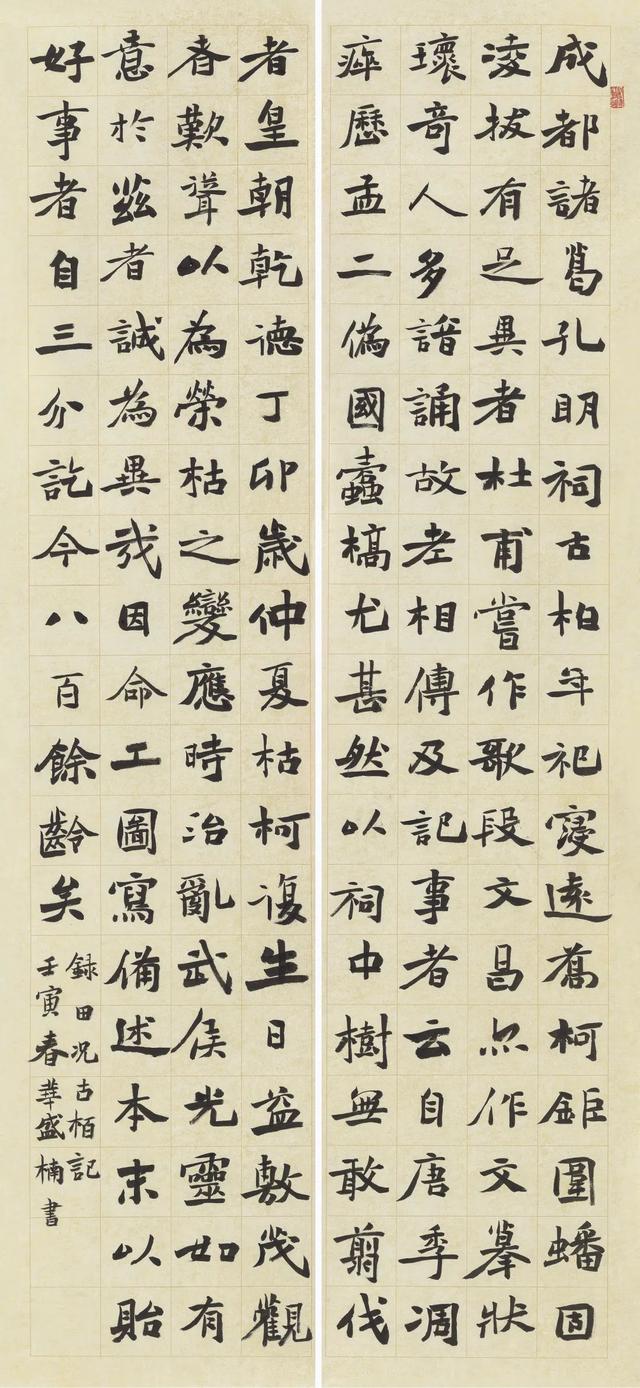 成都諸葛孔明祠古柏年祀寖遠喬柯鉅圍蟠固
凌拔有足異者杜甫嘗作歌段文昌亦作文摹狀
瓌奇人多諳誦故老相傳及記事者云自唐季凋
瘁歷孟二偽國蠹槁尤甚然以祠中樹無敢翦伐
者皇朝乾德丁卯歲仲夏枯柯復生日益敷茂觀
者歎聳以為榮枯之變應時治亂武侯光靈如有
意於茲者誠為異哉因命工圖寫備述本末以貽
好事者自三分訖今八百餘齡矣
録田況古栢記
壬寅春華盛楠書